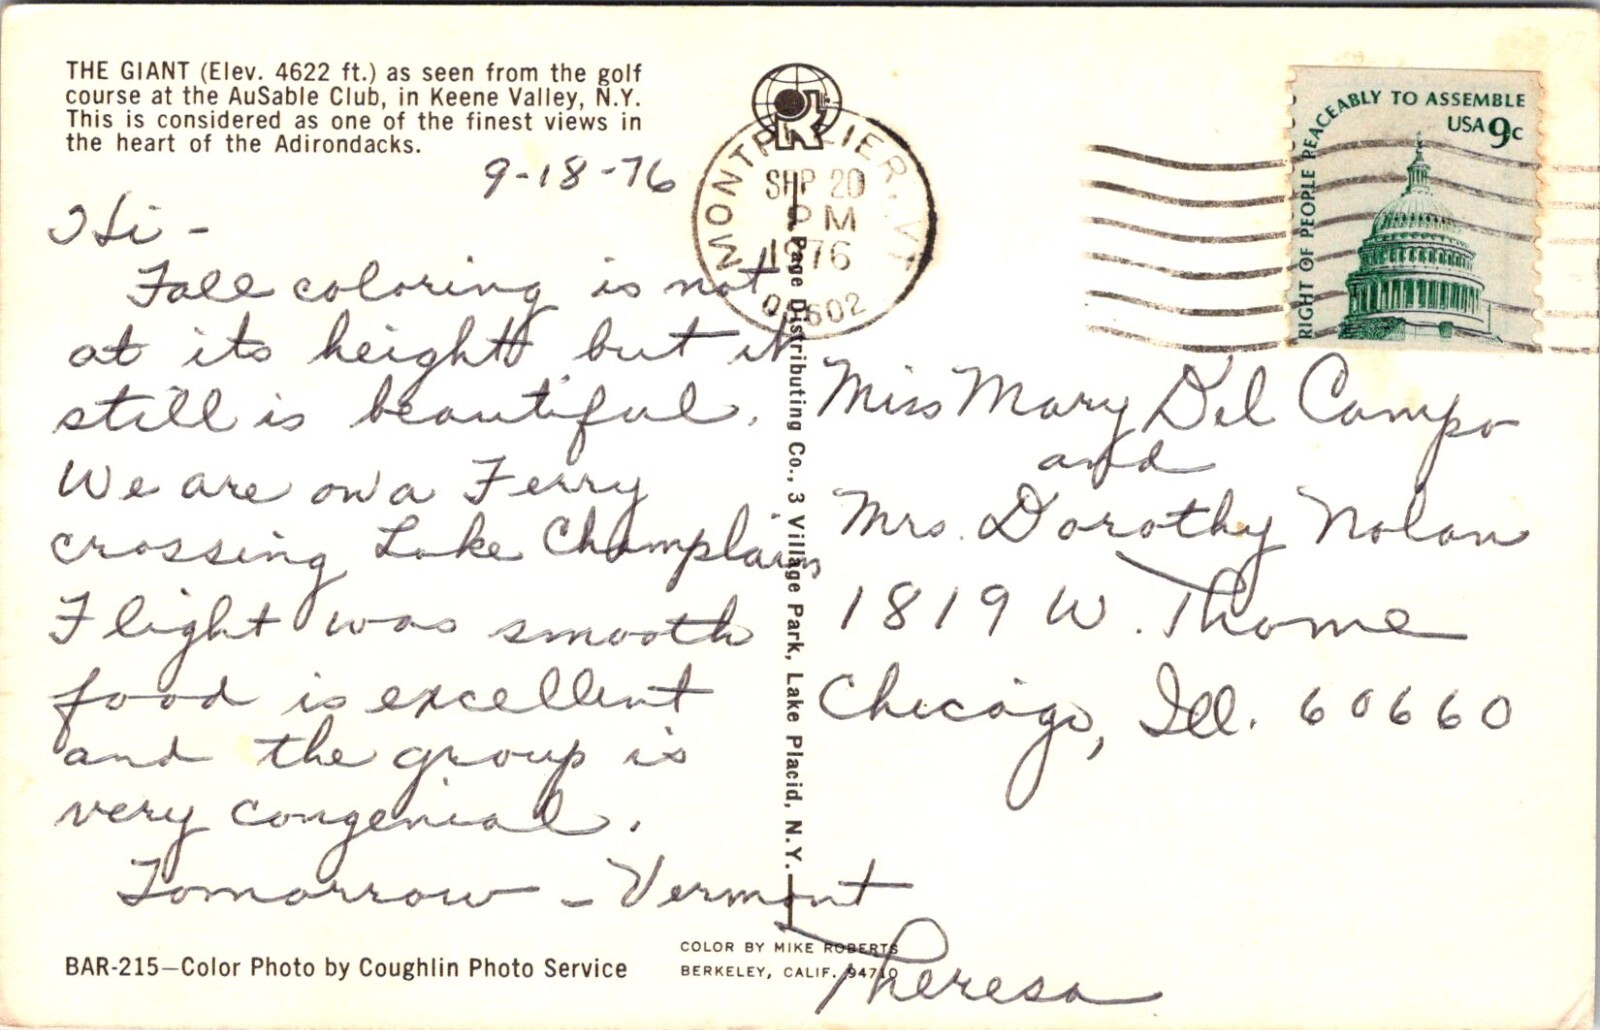 THE GIANT (Elev. 4622 ft.) as seen from the golf
course at the AuSable Club, in Keene Valley, N.Y.
This is considered as one of the finest views in
the heart of the Adirondacks.
9-18-76
Hi -
Fall coloring is not
at its height but it
still is beautiful.
We are on a Ferry
crossing Lake Champlain
Flight was smooth
food is excellent
and the group is
very congenial.
Tomorrow - Vermont
Theresa
BAR-215—Color Photo by Coughlin Photo Service
COLOR BY MIKE ROBERTS
BERKELEY, CALIF. 94710
Page Distributing Co., 3 Village Park, Lake Placid, N.Y.
MONTPELIER, VT
SEP 20
PM
1976
05602
RIGHT OF PEOPLE PEACEABLY TO ASSEMBLE
USA 9c
Miss Mary Del Campo
and
Mrs. Dorothy Nolan
1819 W. Thome
Chicago, Ill. 60660